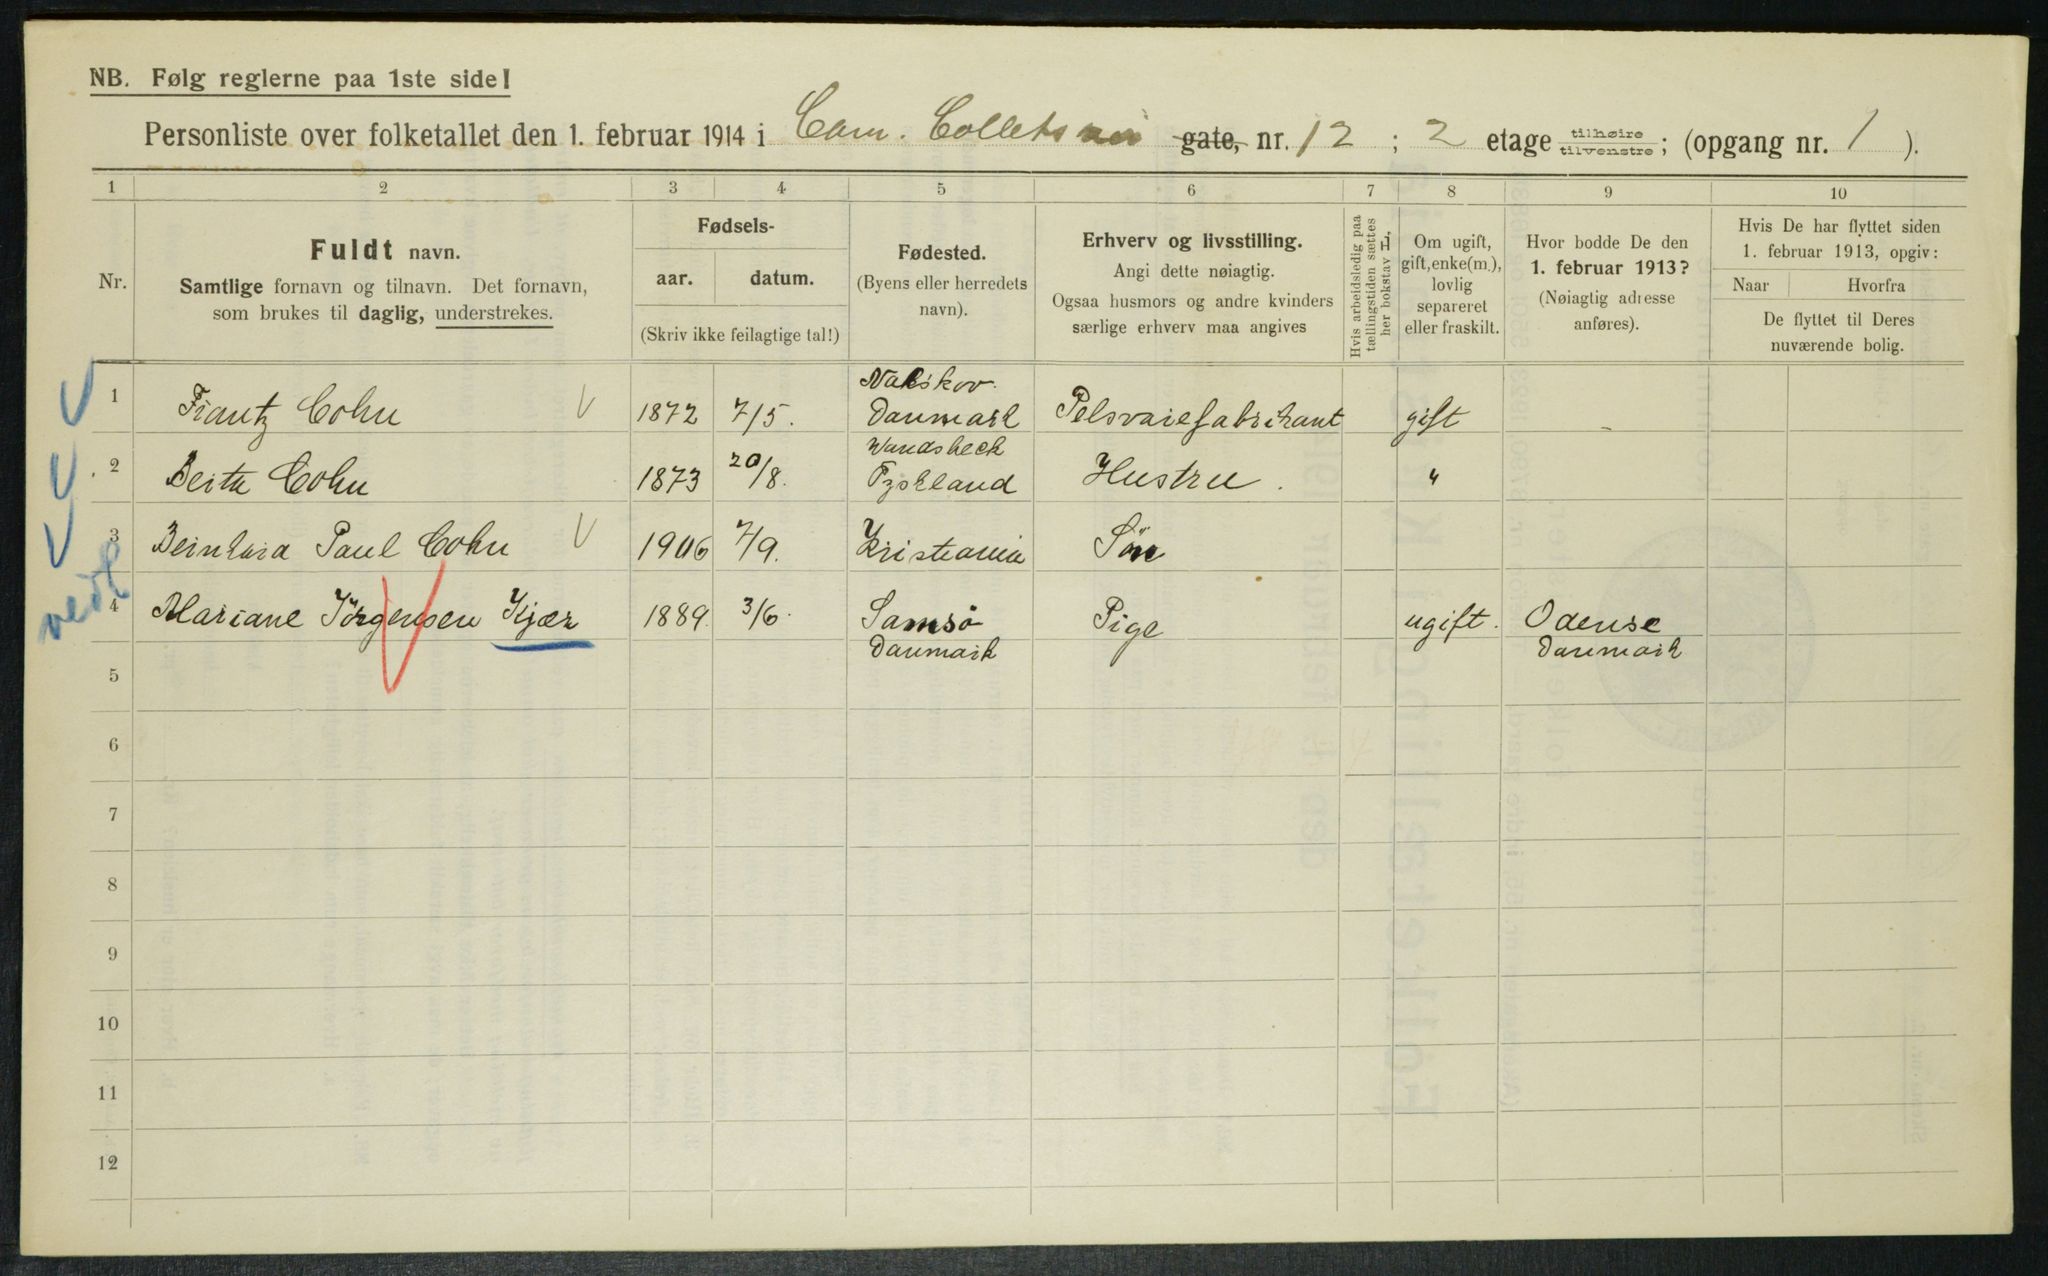 NB. Følg reglerne paa 1ste side!
Personliste over folketallet den 1. februar 1914 i Cam. Colletsvei gate, nr. 12 ; 2 etage tilhøire tilvenstre; (opgang nr. 1 ).
1 2 3 4 5 6 7 8 9 10
Nr.
Fuldt navn.
Samtlige fornavn og tilnavn. Det fornavn,
som brukes til daglig, understrekes.
Fødsels-
aar. datum.
(Skriv ikke feilagtige tal!)
Fødested.
(Byens eller herredets
navn).
Erhverv og livsstilling.
Angi dette nøiagtig.
Ogsaa husmors og andre kvinders
særlige erhverv maa angives
Hvis arbeidsledig paa
tællingstiden sættes
her bokstav L,
Om ugift,
gift, enke(m.),
lovlig
separeret
eller fraskilt.
Hvor bodde De den
1. februar 1913?
(Nøiagtig adresse
anføres).
Hvis De har flyttet siden
1. februar 1913, opgiv:
Naar Hvorfra
De flyttet til Deres
nuværende bolig.
1 Frantz Cohn 1872 7/5. Nakskov. Danmark Pelsvarefabrikant gift -
2 Berta Cohn 1873 20/8. Wandsbeck Tyskland Hustru. "
3 Bernhard Paul Cohn 1906 7/9. Kristiania Søn
4 Mariane Jörgensen Kjær 1889. 3/6. Samsö Danmark Pige ugift. Odense Danmark
5
6
7
8
9
10
11
12